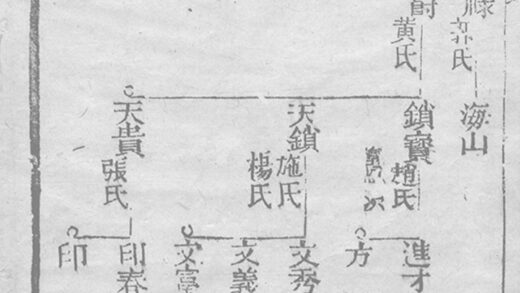 氏
黄氏
海山
鎖寶
趙氏
天鎖
施氏
楊氏
天貴
張氏
進才
方
文秀
文義
文富
印春
印